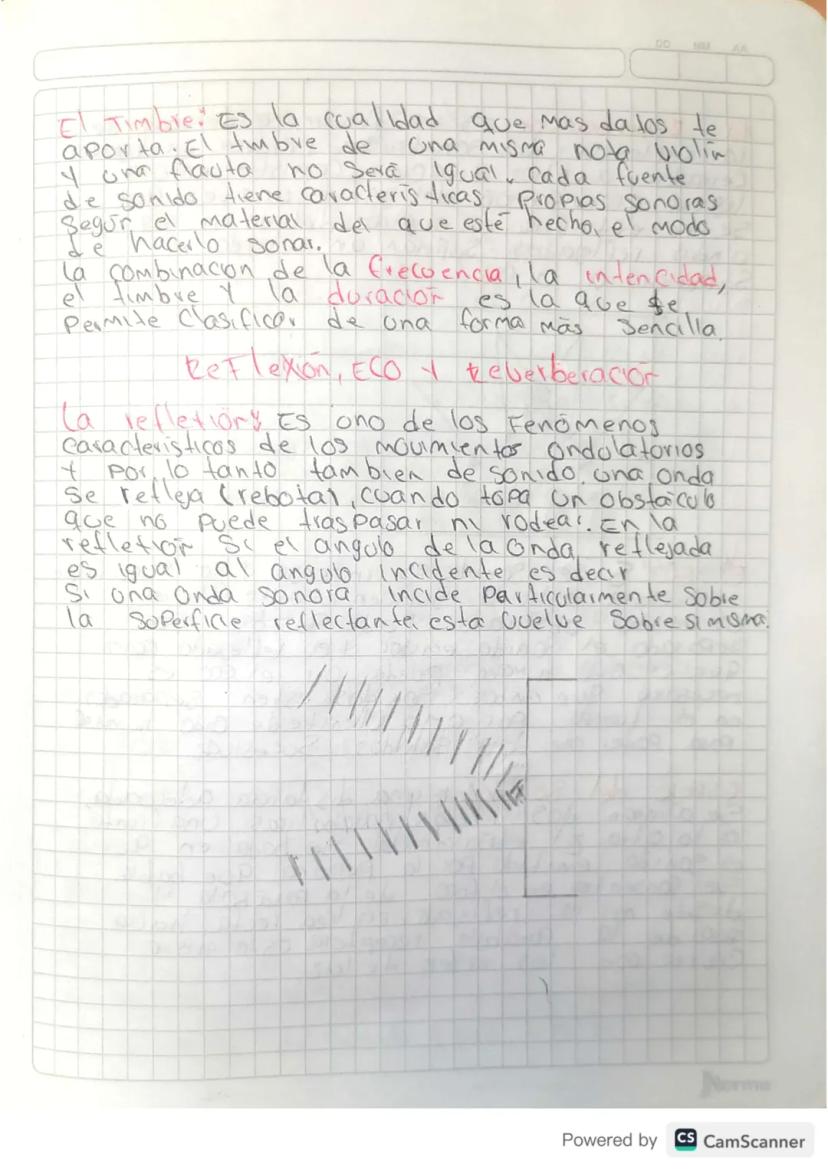 DD MM AA
El Timbre: Es la cualidad que mas datos te
aporta. El timbre de una misma nota violin
y una flauta no será igual, cada fuente
de sonido tiene caracteristicas propias sonoras
según el material del que esté hecho, el modo
de hacerlo sonar.
La combinacion de la frecuencia, la intencidad,
el timbre y la duración es la que se
permite clasificar de una forma más sencilla.
Reflexión, ECO y Reverberación
La reflexión: Es uno de los Fenómenos
caracteristicos de los movimientos ondulatorios
y por lo tanto tambien de sonido, una onda
se refleja (rebota), cuando topa un obstáculo
que no puede traspasar ni rodear. En la
reflexión si el angulo de la onda reflejada
es igual al angulo incidente es decir
Si una onda sonora incide particularmente sobre
la superficie reflectante, esta vuelve sobre si misma.
Norma
Powered by CS CamScanner